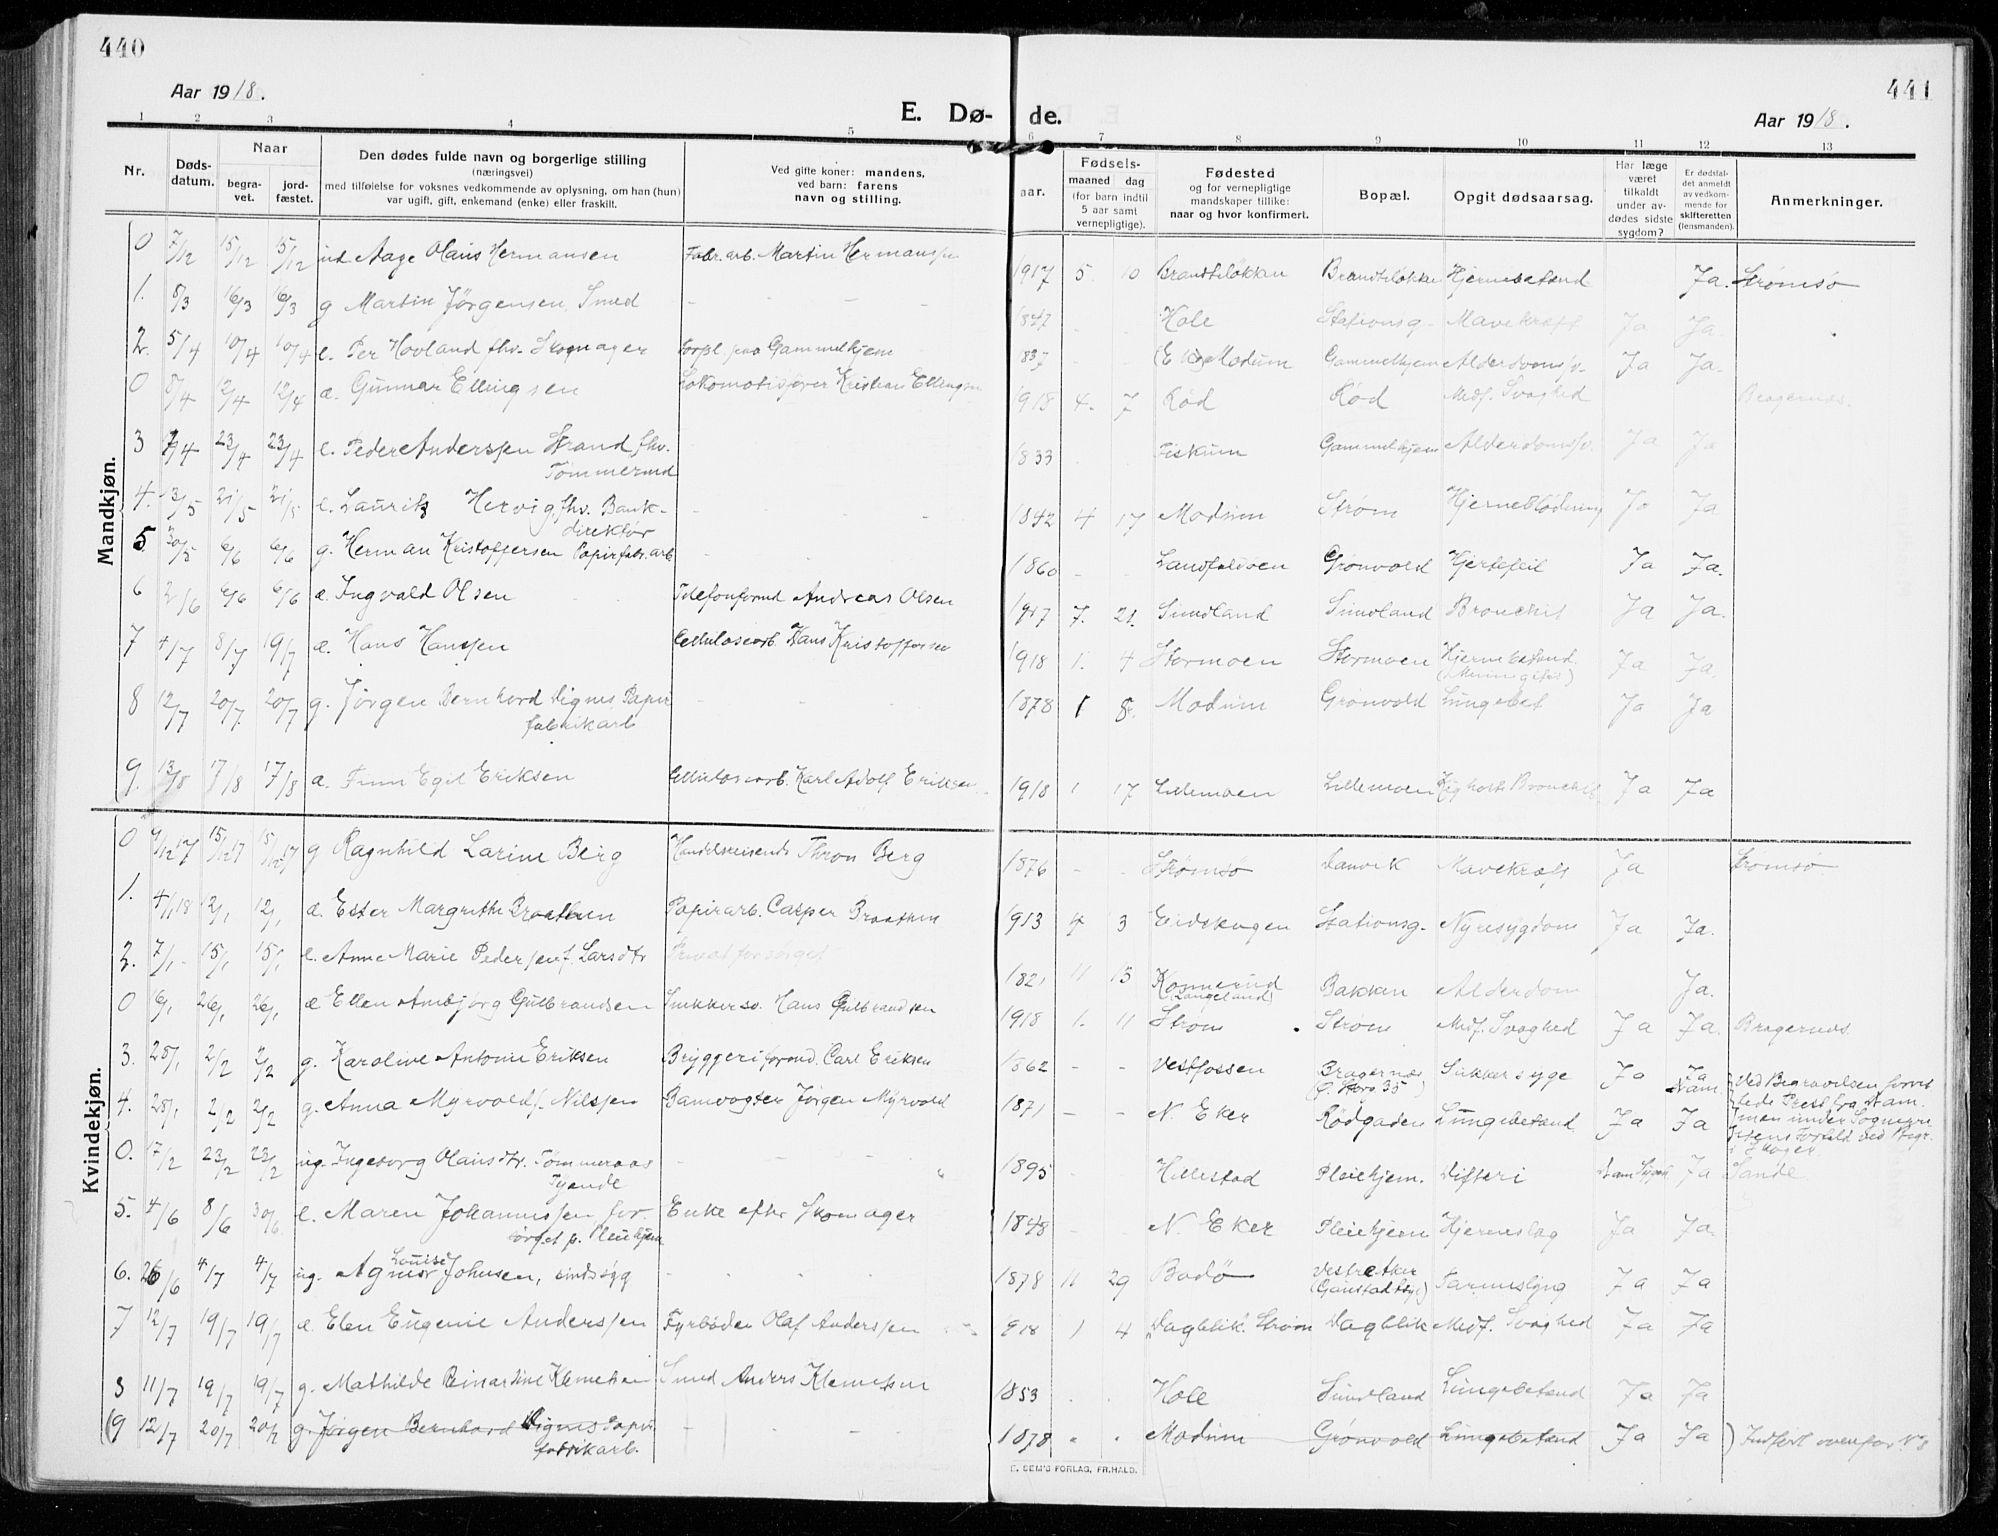 440
441
Aar 1918.
E. Dø-
de.
Aar 1918.
1 2 3 4 5 6 7 8 9 10 11 12 13
Nr.
Døds-
datum.
Naar
begra-
vet.
jord-
fæstet.
Den dødes fulde navn og borgerlige stilling
(næringsvei)
med tilføielse for voksnes vedkommende av oplysning, om han (hun)
var ugift, gift, enkemand (enke) eller fraskilt.
Ved gifte koner: mandens,
ved barn: farens
navn og stilling.
aar.
Fødsels-
maaned dag
(for barn indtil
5 aar samt
vernepligtige).
Fødested
og for vernepligtige
mandskaper tillike:
naar og hvor konfirmert.
Bopæl.
Opgit dødsaarsag.
Har læge
været
tilkaldt
under av-
dødes sidste
sygdom?
Er dødsfal-
det anmeldt
av vedkom-
mende for
skifteretten
(lensmanden).
Anmerkninger.
Mandkjøn.
0 7/12 15/12 15/12 Aage Olaus Hermansen Fabr. arb. Martin Hermansen 1917 5 10 Brandtsløkken Brandtsløkken Hjernebetænd Ja. Strømsø
1. 8/3 16/3 16/3 g Martin Jørgensen, Smed - - - 1847 - - Hole Stationsg. Mavekræft Ja Ja.
2. 5/4 10/4 10/4 e. Per Hovland fhv. Skomager Forpl. paa Gammelhjem 837 - - Modum Gammelhjem Alderdomssv. Ja Ja.
0 8/4 12/4 12/4 æ. Gunnar Ellingsen Lokomotivfører Kristian Ellingsen 1918 4. 7 Rød Rød Medf. Svaghed Bragernes.
3 7/4 23/4 23/4 e. Peder Anderssen Strand, fhv. 1833 Fiskum Gammelhjem Alderdomssv. Ja Ja
Tømmermd
4. 13/5 21/5 21/5 e. Lauritz Hervig, fhv. Bank- 1842 4 17 Modum Strøm Hjerneblødning Ja Ja
direktør
5 30/5 6/6 6/6 g. Herman Kristoffersen Papirfabr. arb 1860 - - Landfaldøen Grønvold Hjertefeil Ja Ja.
6 2/6 6/6 6/6 æ. Ingvald Olsen Telefonformd Andreas Olsen 1917 7. 21. Sundland Sundland Bronchit Ja Ja.
7 4/7 8/7 19/7 æ. Hans Hanssen Cellulosearb. Hans Kristoffersen 1918 1. 4 Stormoen Stormoen Hjernebetænd. Ja Ja.
8 12/7 20/7. 20/7 g. Jørgen Bernhard Vignes Papir 1878 1 8. Modum Grønvold Lungebet Ja Ja
fabrikarb
9. 13/8 17/8 17/8 æ. Finn Egil Eriksen Cellulosearb. Karl Adolf Eriksen 1918 1 17 Lillemoen Lillemoen Kighoste Bronchit Ja Ja
Kvindekjøn.
0 9/12 17 15/12 17 15/12 17 g Ragnhild Larine Berg Handelsreisende Thron Berg 1876 - - Strømsø Danvik Mavekræft Ja Strømsø
1. 4/1 18 12/1 12/1 æ. Ester Margrethe Braathen Papirarb. Casper Braathen 1913 4 3 Eidskogen Stationsg. Nyresygdom Ja Ja.
2. 7/1 15/1 15/1 e. Anne Marie Pedersen f. Larsdtr Privat forsørget 1821 11 15 Konnerud Bakken Alderdom Ja.
(Langeland)
0 16/1 26/1 26/1 æ Ellen Ambjørg Gulbrandsen Snikkersv. Hans Gulbrandsen 1918 1. 11 Strøm Strøm Medf. Svaghed Ja Ja. Bragernes.
3. 25/1 2/2 2/2 g. Karoline Antonie Eriksen Bryggeriformd. Carl Eriksen 1862 Vestfossen Bragernæs Sukkersyge Ja Ja
4. 28/1 2/2 2/2 g. Anna Myrvold f. Nilssen Banevogter Jørgen Myrvold 1871 - - N. Eker Rødgaden Lungebetænd. Ja Ja
Ved Begravelsen forret
tede Prest fra Nam.
men under Sognepre
stens Forfald ved Begr.
i Skoger
0. 17/2 23/2 23/2 ug. Ingeborg Olausdtr. Tømmeraas 1895 - Hillestad Pleiehjem. Difteri Ja Sande
Tjende
5. 4/6 8/6 30/6. e. Maren Johannessen for- Enke efter Skomager 1848 - N. Eker Pleiehjem Hjerneslag Ja Ja.
sørget p. Pleiehjem
Louise
6. 26/6 4/7 4/7 ug. Agnes Johnsen, sindssyg 1878 11 29 Bodø Vestre Aker Tarmslyng Ja Ja
(Gaustad Asyl)
7 12/7 19/7 19/7 æ. Elen Eugenie Anderssen Fyrbøder Olaf Anderssen 918 1 4 "Dagblik" Strøm Dagblik Medf. Svaghed Ja Ja
8 11/7 19/7 19/7 g. Mathilde Bernartine Klemetsen Smed Anders Klemetsen 1853 Hole Sundland Lungebetænd Ja Ja
(9 12/7 20/7 20/7 g. Jørgen Bernhard Vignes Papir- 1878 Modum Grønvold Lungebetænd Ja Ja ) Indført ovenfor N. 8
fabrikarb.
E. SEM'S FORLAG, FR.HALD.